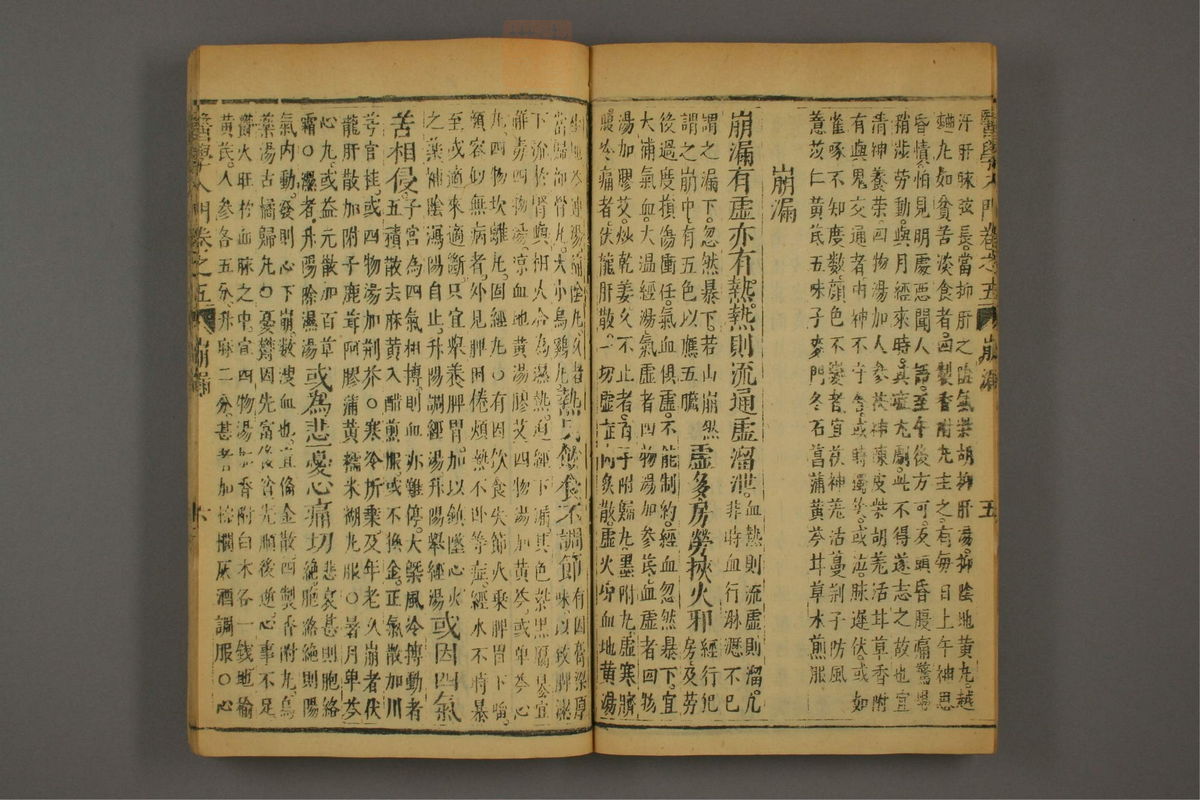 汙肝脉弦長當抑肝之陰氣柴胡抑肝湯抑陰地黃丸越
鞠丸如貧苦淡食者四製香附丸主之有每日上午神思
昏憒怕見明處惡聞人語至午後方可及頭昏腹痛驚惕
稍涉勞動與月經來時其症尤劇此不得遂志之故也宜
清神養榮四物湯加人參茯神陳皮柴胡羌活甘草香附
有與鬼交通者由神不守舍或時獨笑或泣脉遲伏或如
雀啄不知度數顏色不變者宜茯神羌活蔓荆子防風
薏苡仁黃芪五味子麥門冬石菖蒲黃芩甘草水煎服
崩漏
崩漏有虛亦有熱熱則流通虛溜泄血熱則流虛則溜凡非時血行淋瀝不已
謂之漏下忽然暴下若山崩然
謂之崩中有五色以應五臟虛多房勞挾火邪經行犯房及勞
役過度損傷衝任氣血俱虛不能制約經血忽然暴下宜
大補氣血大温經湯氣虛者四物湯加參芪血虛者四物
湯加膠艾炒乾姜久不止者百子附歸丸墨附丸虛寒臍
腹冷痛者伏龍肝散一切虛症內灸散虛火㷀血地黃湯
當歸龍骨丸大小烏雞丸熱只飲食不調節有因膏梁厚味以致脾濕
下流於腎與相火合為濕熱迫經下漏其色紫黑腐臭宜
解毒四物湯凉血地黃湯膠艾四物湯加黃芩或單芩心
丸四物坎離丸固經丸○有因飲食失節火乘脾胃下陷
頗容似無病者外見脾困倦煩熱不卧等症經水不時暴
至或適來適斷只宜舉養脾胃加以鎮墜心火
之藥補陰瀉陽自止升陽調經湯升陽舉經湯或因四氣
苦相侵子宮為四氣相搏則血亦難停大槩風冷搏動者五積散去麻黃入醋煎服或不換金正氣散加川
芎官桂或四物湯加荆芥○寒冷所乘及年老久崩者伏
龍肝散加附子鹿茸阿膠蒲黃糯米糊丸服○暑月單芩
心丸或益元散加百草
霜○濕者升陽除濕湯或為悲憂心痛切悲哀甚則胞絡絕胞絡絕則陽
氣內動發則心下崩數溲血也宜俻金散四製香附丸烏
藥湯古橘歸丸○憂鬱因先富後貧先順後逆心事不足
鬱火旺於血脉之中宜四物湯加香附白术各一錢地榆
黃芪人參各五分升麻二分甚者加棕櫚灰酒調服○心
醫學入門卷之五
崩漏
五
醫學入門卷之五
崩漏